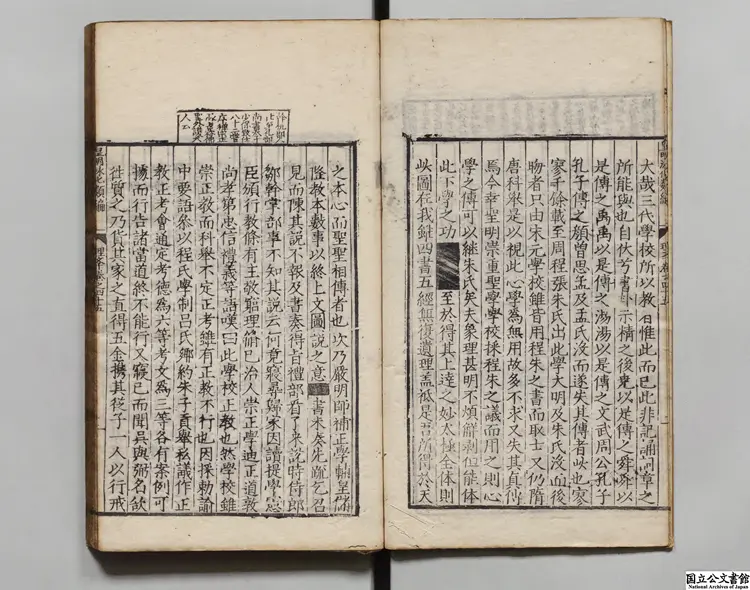 大哉三代學校所以教者惟此而已此非記誦詞章之
所能與也自伏羲畫卦示情之後堯以是傳之舜舜以
是傳之禹禹以是傳之湯湯以是傳之文武周公孔子
孔子傳之顏曾思孟及孟氏沒而遂失其傳者此也寥
寥千餘載至周程張朱氏出此學大明及朱氏沒而後
晦者只由宋元學校雖皆用程朱之書而取士又仍隋
唐科擧是以視此心學為無用故多不求又失其真傳
焉今幸聖明崇重聖學學校採程朱之議而用之則心
學之傳可以繼朱氏矣夫象理甚明不煩解剥但能体
此下學之功 至於得其上達之妙太極全体則
此圖在我雖四書五經無復遺理盖祗是吾所得於天
之本心而聖聖相傳者也次乃嚴明師補正學輔皇儲
隆教本數事以終上文圖說之意 書未奏先疏乞召
見而陳其說不報及書奏得占禮部看了來說時侍郎
鄒幹掌部事不知其說云何竟寢尋歸家因讀提學憲
臣頒行教條有主敬窮理脩己治人崇正學迪正道敦
尚孝弟忠信禮義等語嘆曰此學校正教也然學校雖
崇正教而科舉不定正考雖有正教不行也因採勅諭
中要語参以程氏學制呂氏鄉約朱子貢舉私議作正
教正考會通定考德為六等考文為三等各有案例可
據而行告諸當道終不能行又寢已而聞吳與弼名欲
往質之乃貨其家之直得五金携其從子一人以行戒